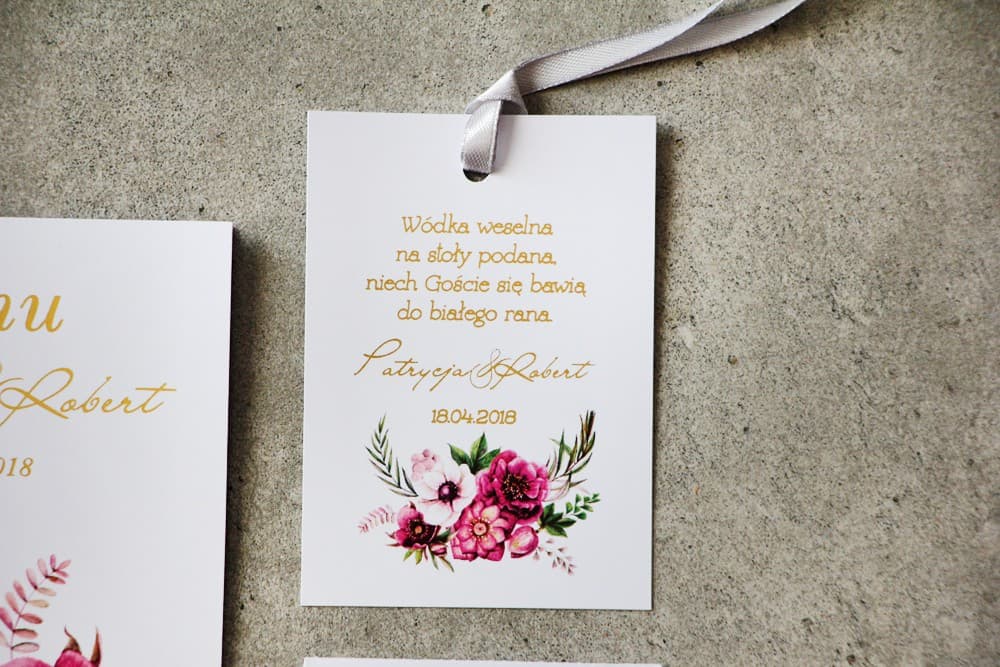 Wódka weselna
na stoły podana,
niech Goście się bawią
do białego rana
Patrycja & Robert
18.04.2018
& Robert